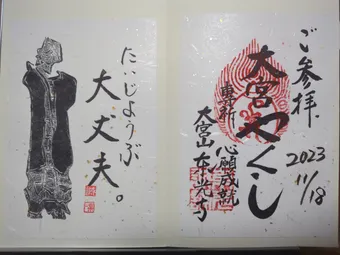 ご参拝
2023
11/18
大宮やくし
専祈 心願成就
大宮山 本光寺
たいじようぶ
大丈夫。